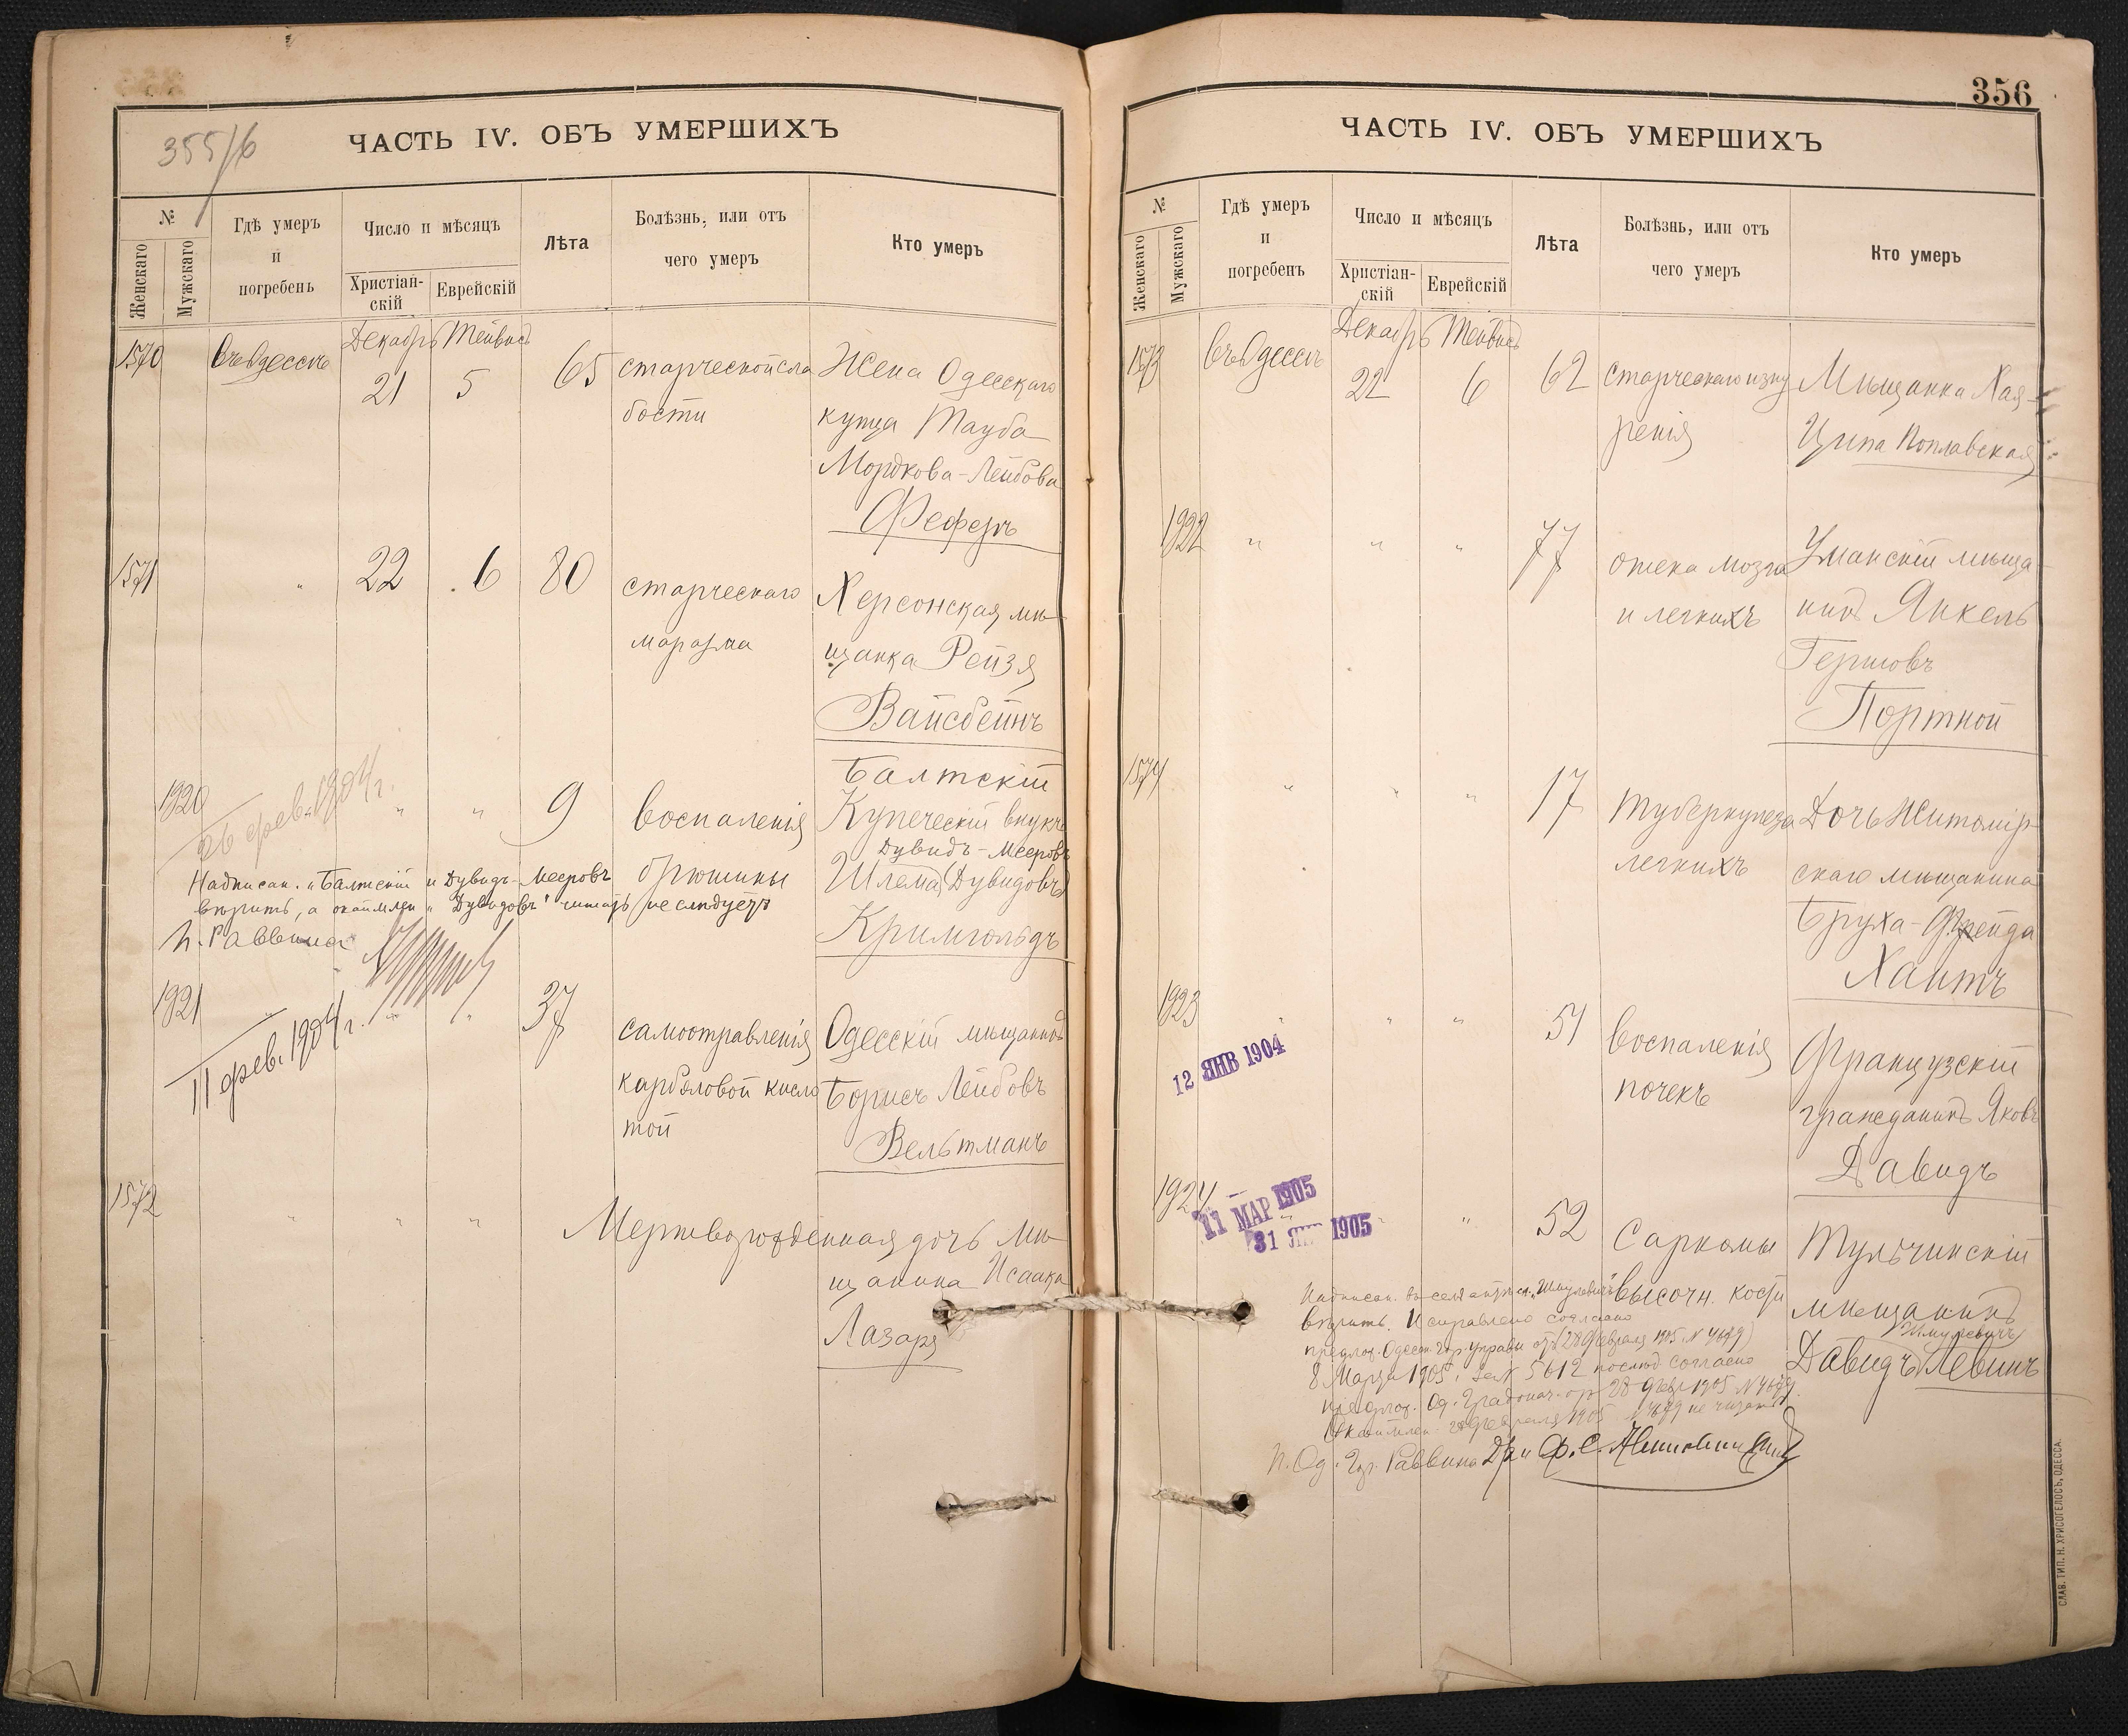 355/6
ЧАСТЬ IV. ОБЪ УМЕРШИХЪ
№
Женскаго
Мужскаго
Гдѣ умеръ
и
погребенъ
Число и мѣсяцъ
Христіан-
скій
Еврейскій
Лѣта
Болѣзнь, или отъ
чего умеръ
Кто умеръ
Декабрь Тейвись
1570 въ Одессѣ 21 5 65 старческой сла Жена Одесскаго
бости купца Тауба
Мордкова-Лейбова
Феферъ
1571 " 22 6 80 старческаго Херсонская мѣ-
маразма щанка Рейзя
Вайсбейнъ
Балтскій
1920 " " 9 воспаленія Купеческій внукъ
26 фев. 1904 г.
Дувидъ-Мееровъ
брюшины Шлема (Дувидовъ)
Кримгольдъ
Надписан. "Балтскій и Дувидъ-Мееровъ
вѣрить, а окаймлен "Дувидовъ" читать не слѣдуетъ
И. Раввина
1921 " " " 37 самоотравленія Одесскій мѣщанинъ
11 фев. 1904 г.
карболовой кисло Борисъ Лейбовъ
той Вельтманъ
1572 " " " Мертворожденная дочь мѣ-
щанина Исаака
Лазаря
356
ЧАСТЬ IV. ОБЪ УМЕРШИХЪ
№
Женскаго
Мужскаго
Гдѣ умеръ
и
погребенъ
Число и мѣсяцъ
Христіан-
скій
Еврейскій
Лѣта
Болѣзнь, или отъ
чего умеръ
Кто умеръ
Декабрь Тейвись
1573 въ Одессѣ 22 6 62 старческаго изну Мѣщанка Хая-
ренія Ципа Поплавская
1922 " " " 77 отека мозга Уманскій мѣща-
и легкихъ нинъ Янкель
Гершовъ
Портной
1574 " " " 17 туберкулеза Дочь Житомір-
легкихъ скаго мѣщанина
Бруха-Фрейда
Хаитъ
1923 " " " 51 воспаленія Французскій
почекъ гражданинъ Яковъ
Давидъ
12 ЯНВ 1904
1924 " " " 52 Саркомы Тульчинскій
11 МАР 1905
31 ЯНВ 1905
высочн. кости мѣщанинъ
Шмулевичъ
Давидъ Левинъ
Надписан. въ сей актов. ст. "Шмулевичъ"
вѣрить. Исправлено согласно
предлож. Одесск. Гор. Управы отъ (28 Февраля 1905 № 4679)
8 Марта 1905 г. за № 5612 послѣд согласно
предлож. Од. Градонач. от 28 Февр 1905 № 4679.
Окаймлен. 28 Февраля 1905 № 4679 не читать
И. Од. Гор. Раввина Др.
СЛАВ. ТИП. Н. ХРИСОГЕЛОСЪ, ОДЕССА.